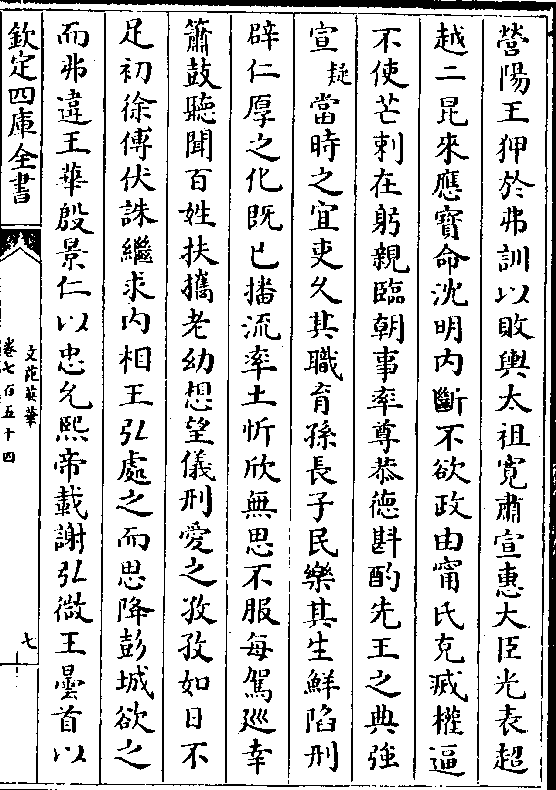 營陽王狎於弗訓以敗輿太祖寛肅宣惠大臣光表超
越二昆來應寳命沈明内斷不欲政由甯氏克滅權逼
不使芒刺在躬親臨朝事率尊恭德斟酌先王之典強
宣疑當時之宜吏久其職育孫長子民樂其生鮮陷刑
辟仁厚之化既已播流率土忻欣無思不服每駕巡幸
簫鼓聽聞百姓扶攜老幼想望儀刑愛之孜孜如日不
足初徐傅伏誅繼求内相王弘處之而思降彭城欲之
而弗違王華殷景仁以忠允熙帝載謝弘微王曇首以
欽定四庫全書
文苑英華
卷七百五十四
七